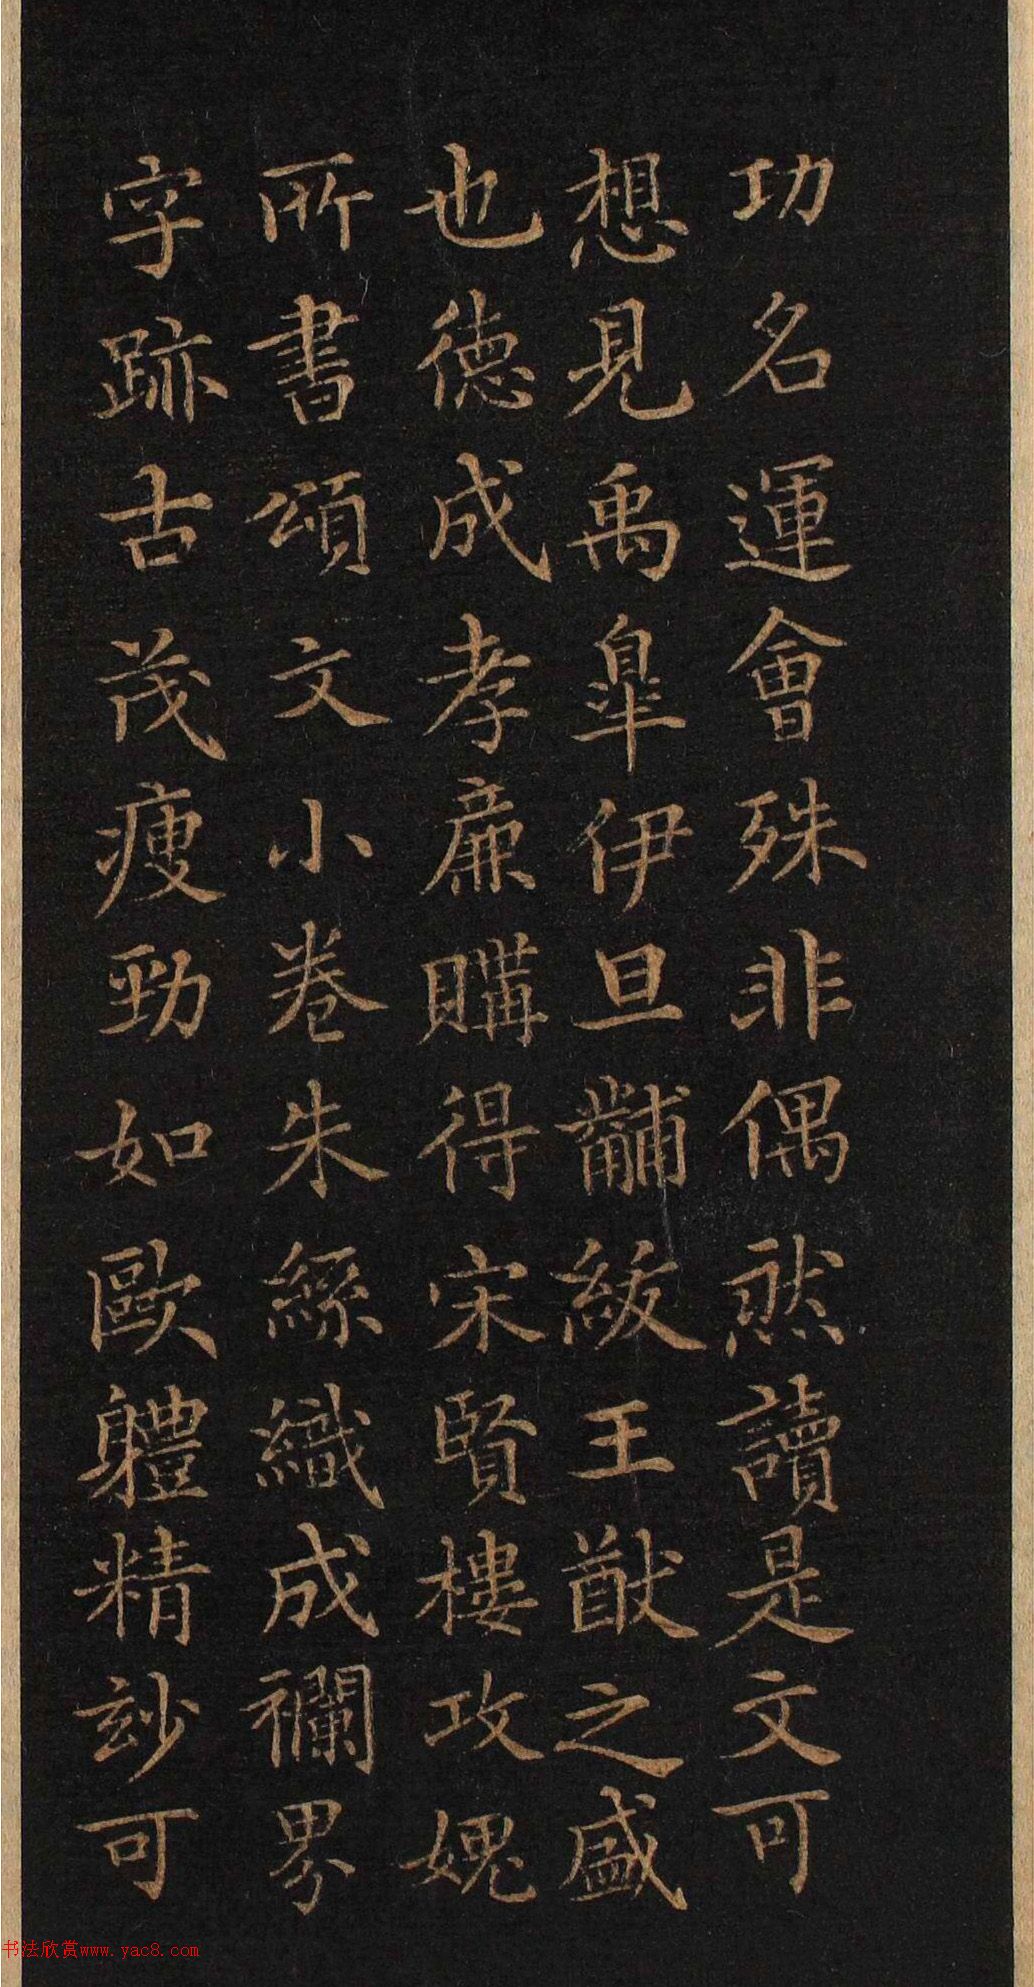 功名運會殊非偶然讀是文可
想見禹皐伊旦黼紱王猷之盛
也德成孝廉購得宋賢樓攻媿
所書頌文小卷朱絲織成襴界
字跡古茂瘦勁如歐軆精玅可
书法欣赏www.yac8.com